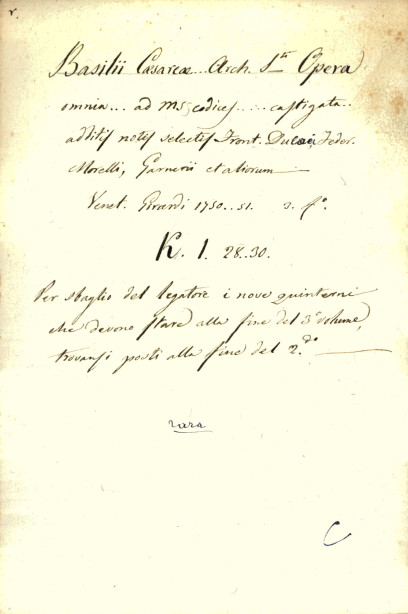 r.
Basilii Cæsareæ... Arch. S.ti Opera
omnia... ad mss codices...... castigata..
additis notis selectis Front. Ducæi, Feder.
Morelli, Garnerii et aliorum —
Venet. Girardi 1750..51. 3. f.o
K. 1. 28..30.
Per sbaglio del legatore i nove quinterni
che devono stare alla fine del 3.o volume,
trovansi posti alla fine del 2.do —
rara
C